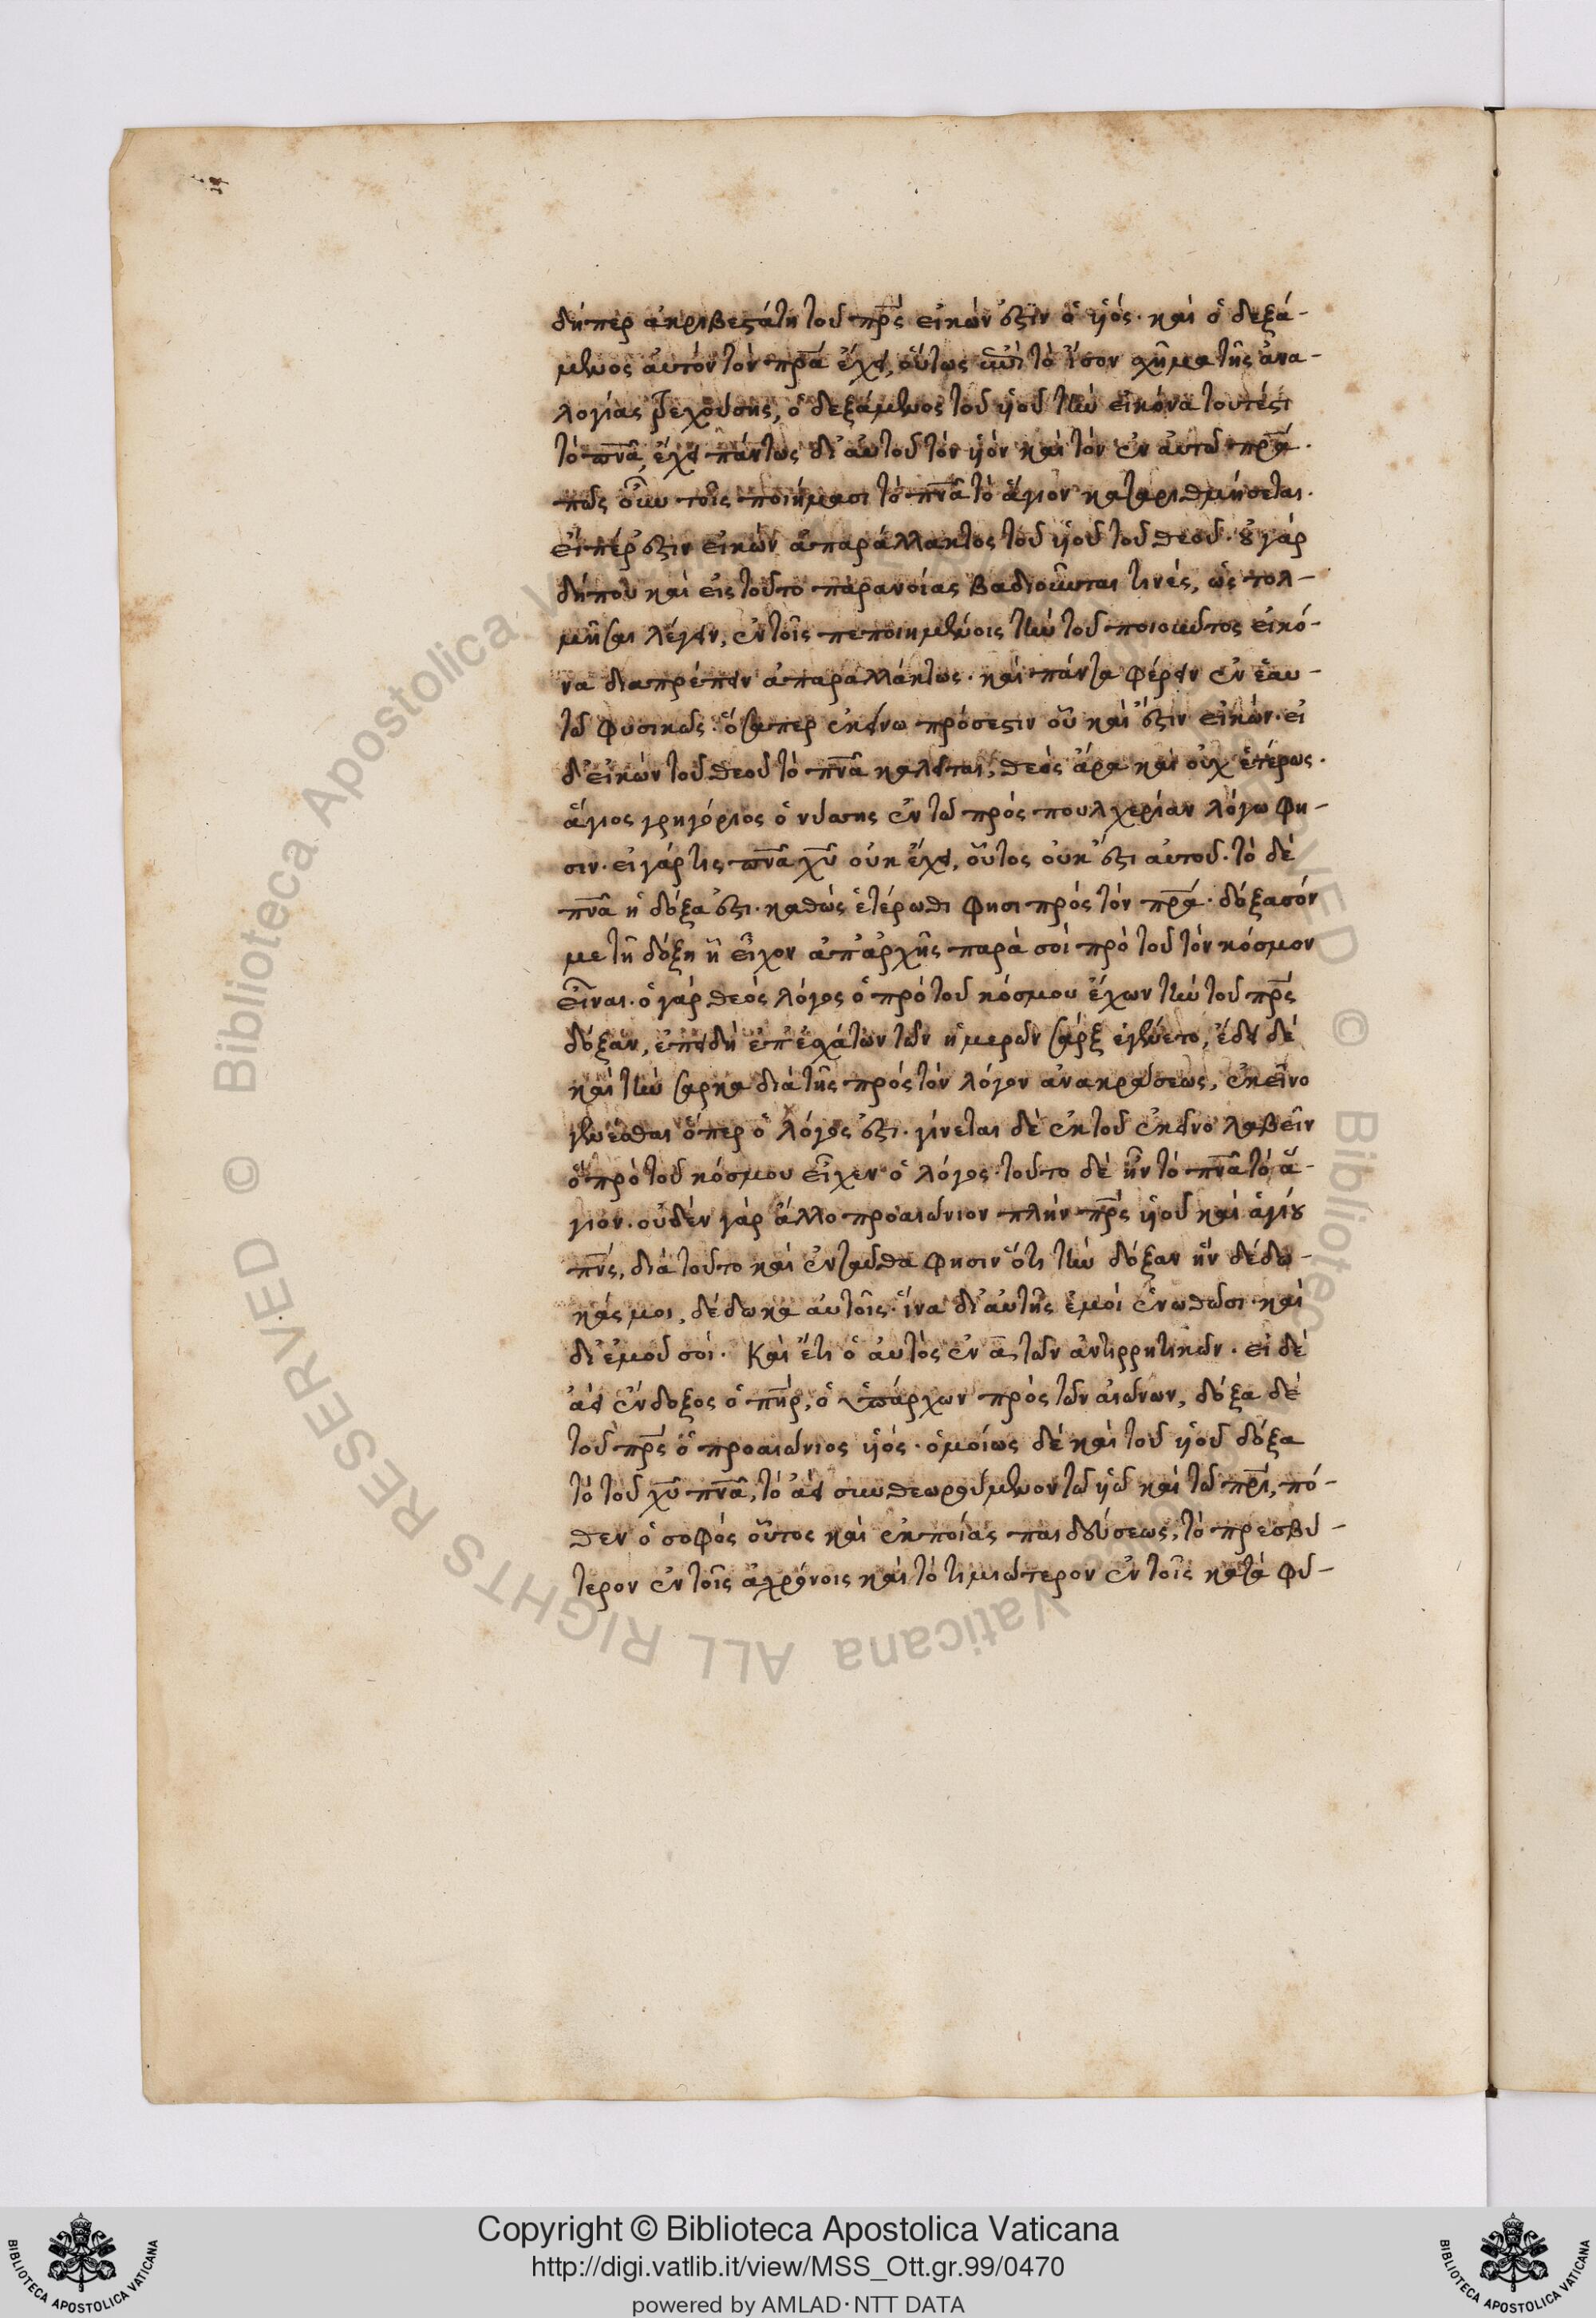 δήπερ ἀκριβεστάτη τοῦ πρ̅ς εἰκών ἐστιν ὁ υἱός. καὶ ὁ δεξά-
μενος αὐτόν τὸν πρ̅α ἔχει, οὕτως ἐπὶ τὸ ἴσον σχῆμα τῆς ἀνα-
λογίας τρεχούσης, ὁ δεξάμενος τοῦ υἱοῦ τὴν εἰκόνα τουτέστι
τὸ πν̅α, ἔχει πάντως δι' αὐτοῦ τὸν υἱόν καὶ τὸν ἐν αὐτῷ πρ̅α.
πῶς οὖν τοῖς ποιήμασι τὸ πν̅α τὸ ἅγιον καταριθμήσεται.
εἰπέρ ἐστιν εἰκών ἀπαράλλακτος τοῦ υἱοῦ τοῦ θεοῦ. οὐ γάρ
δήπου καὶ εἰς τοῦτο παρανοίας βαδιοῦνται τινές, ὡς τολ-
μῆσαι λέγειν, ἐν τοῖς πεποιημένοις τὴν τοῦ ποιοῦντος εἰκό-
να διαπρέπειν ἀπαραλλάκτως. καὶ πάντα φέρειν ἐν ἑαυ-
τῷ φυσικῶς. ὅσαπερ ἐκείνω πρόσεστιν οὗ καὶ ἔστιν εἰκών. εἰ
δ' εἰκών τοῦ θεοῦ τὸ πν̅α καλεῖται, θεός ἄρα καὶ οὐχ ἑτέρως.
ἅγιος γρηγόριος ὁ νύσσης ἐν τῷ πρός πουλχερίαν λόγω φη-
σιν. εἰ γάρ τις πν̅α χυ̅ οὐκ ἔχει, οὗτος οὐκ ἔστι αὐτοῦ. τὸ δὲ
πν̅α ἡ δόξα ἐστι. καθώς ἑτέρωθι φησι πρός τὸν πρ̅α. δόξασόν
με τῇ δόξῃ ᾗ εἶχον ἀπ' ἀρχῆς παρὰ σοί πρὸ τοῦ τὸν κόσμον
εἶναι. ὁ γάρ θεός λόγος ὁ πρὸ τοῦ κόσμου ἔχων τὴν τοῦ πρ̅ς
δόξαν, ἐπειδὴ ἐπ' ἐσχάτων τῶν ἡμερῶν σάρξ ἐγένετο, ἔδει δὲ
καὶ τὴν σάρκα διὰ τῆς πρός τὸν λόγον ἀνακράσεως, ἐκεῖνο
γενέσθαι ὅπερ ὁ λόγος ἐστι. γίνεται δὲ ἐκ τοῦ ἐκεῖνο λαβεῖν
ὅ πρὸ τοῦ κόσμου εἶχεν ὁ λόγος. τοῦτο δὲ ἦν τὸ πν̅α τὸ ἅ-
γιον. οὐδὲν γὰρ ἄλλο προαιώνιον πλὴν πρ̅ς υἱοῦ καὶ ἁγίου
πν̅ς, διὰ τοῦτο καὶ ἐνταῦθα φησιν ὅτι τὴν δόξαν ἥν δέδω-
κάς μοι, δέδωκα αὐτοῖς. ἵνα δι' αὐτῆς ἐμοί ἑνωθῶσι. καὶ
δι' ἐμοῦ σοί. Καὶ ἔτι ὁ αὐτὸς ἐν α̅ τῶν ἀντιρρητικῶν. εἰ δὲ
ἀεὶ ἔνδοξος ὁ πη̅ρ, ὁ ὑπάρχων πρὸς τῶν αἰώνων, δόξα δὲ
τοῦ πρ̅ς ὁ προαιώνιος υἱός. ὁμοίως δὲ καὶ τοῦ υἱοῦ δόξα
τὸ τοῦ χυ̅ πν̅α, τὸ ἀεὶ συνθεωρούμενον τῷ υἱῷ καὶ τῷ πρ̅ι, πό-
θεν ὁ σοφός οὗτος καὶ ἐκ ποίας παιδεύσεως, τὸ πρεσβύ-
τερον ἐν τοῖς ἀχρόνοις καὶ τὸ τιμιώτερον ἐν τοῖς κατὰ φύ-
Copyright © Biblioteca Apostolica Vaticana
http://digi.vatlib.it/view/MSS_Ott.gr.99/0470
powered by AMLAD·NTT DATA